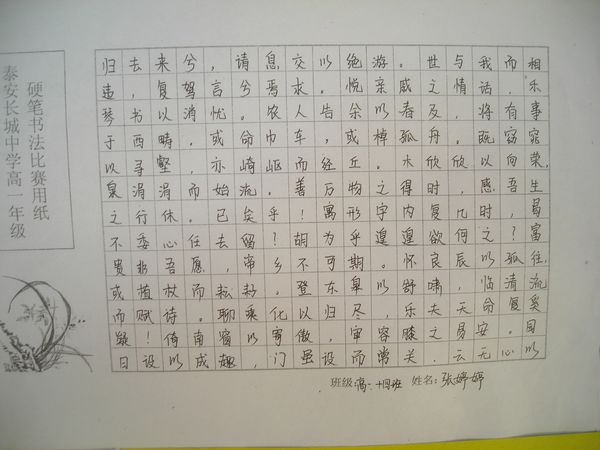 硬笔书法比赛用纸
泰安长城中学高一年级
归去来兮，请息交以绝游。世与我而相
违，复驾言兮焉求。悦亲戚之情话，乐
琴书以消忧。农人告余以春及，将有事
于西畴。或命巾车，或棹孤舟。既窈窕
以寻壑，亦崎岖而经丘。木欣欣以向荣，
泉涓涓而始流。善万物之得时，感吾生
之行休。已矣乎！寓形宇内复几时，曷
不委心任去留？胡为乎遑遑欲何之？富
贵非吾愿，帝乡不可期。怀良辰以孤往，
或植杖而耘耔。登东皋以舒啸，临清流
而赋诗。聊乘化以归尽，乐夫天命复奚
疑！倚南窗以寄傲，审容膝之易安。园
日设以成趣，门虽设而常关。云无心以
班级:高一十四班 姓名:张婷婷